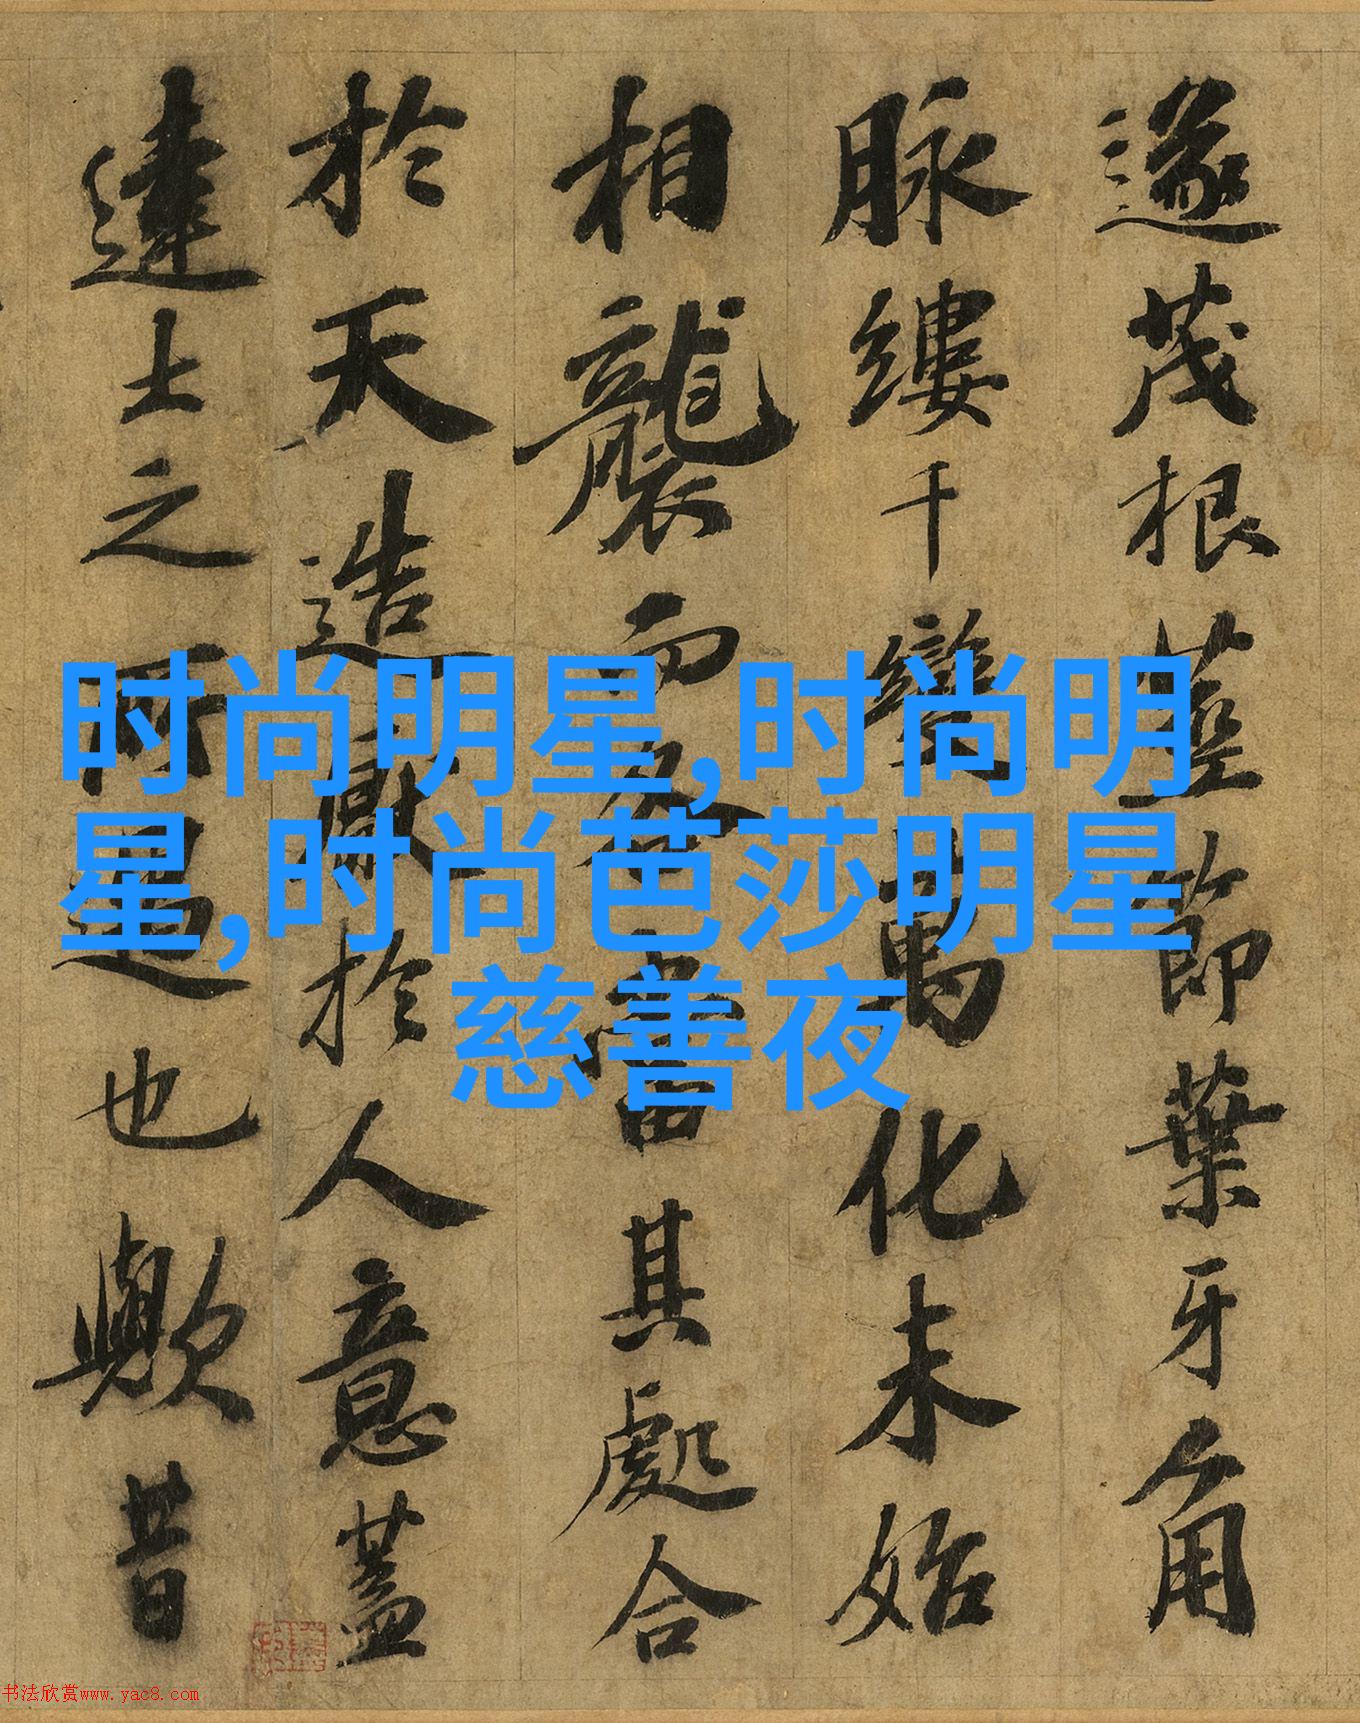 遂茂根莖節葉牙角
脉縷千變萬化未始
相襲而各當其處合
於天造猒於人意蓋
達士之所也歟昔
时尚明星,时尚明
星,时尚芭莎明星
慈善夜
书法欣赏www.yac8.com